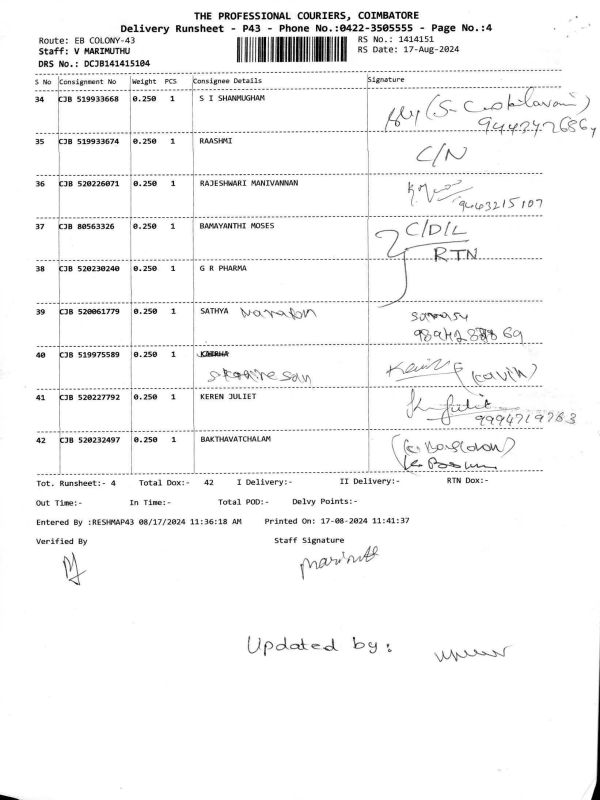 THE PROFESSIONAL COURIERS, COIMBATORE
Delivery Runsheet - P43 - Phone No.:0422-3505555 - Page No.:4
Route: EB COLONY-43 RS No.: 1414151
Staff: V MARIMUTHU RS Date: 17-Aug-2024
DRS No.: DCJB141415104
S No Consignment No Weight PCS Consignee Details Signature
34 CJB 519933668 0.250 1 S I SHANMUGHAM
35 CJB 519933674 0.250 1 RAASHMI C/N
36 CJB 520226071 0.250 1 RAJESHWARI MANIVANNAN
9443215107
37 CJB 80563326 0.250 1 BAMAYANTHI MOSES C/D/L
RTN
38 CJB 520230240 0.250 1 G R PHARMA
39 CJB 520061779 0.250 1 SATHYA
40 CJB 519975589 0.250 1
(Kavin)
41 CJB 520227792 0.250 1 KEREN JULIET
9994719763
42 CJB 520232497 0.250 1 BAKTHAVATCHALAM
Tot. Runsheet:- 4 Total Dox:- 42 I Delivery:- II Delivery:- RTN Dox:-
Out Time:- In Time:- Total POD:- Delvy Points:-
Entered By :RESHMAP43 08/17/2024 11:36:18 AM Printed On: 17-08-2024 11:41:37
Verified By Staff Signature
Updated by: